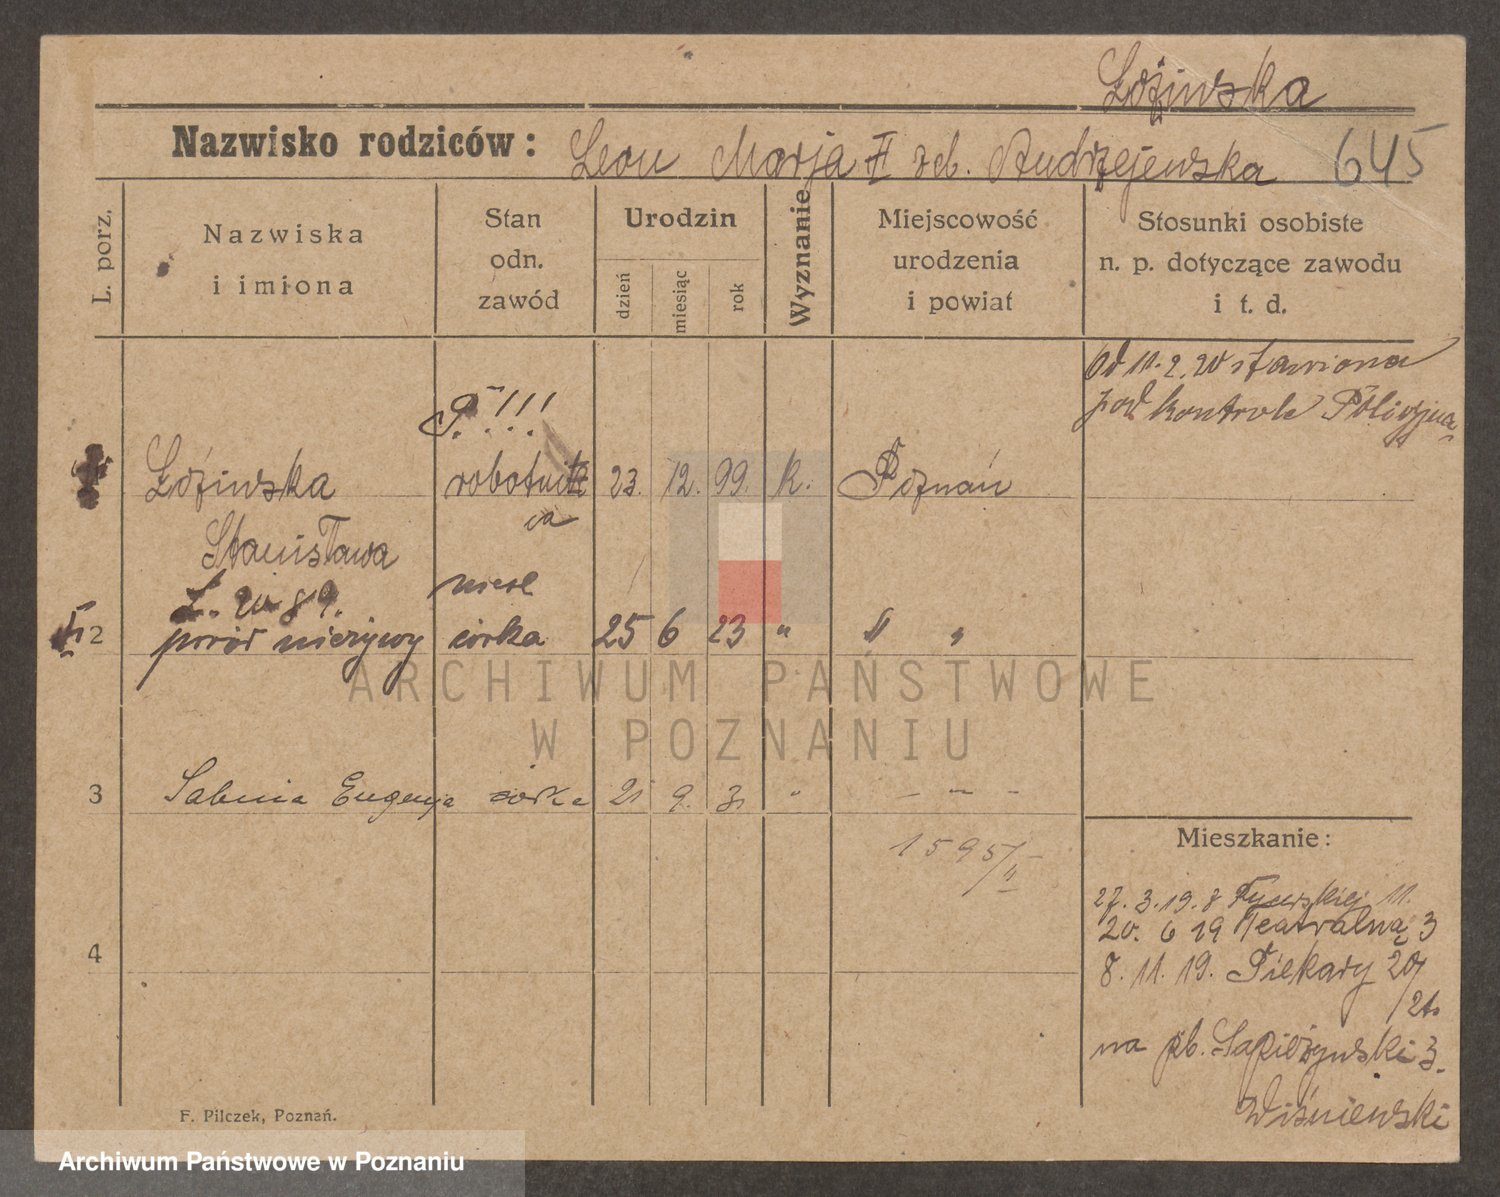 Łozinska
Nazwisko rodziców: Leon Marja II zd. Andrzejewska 645
L. porz.
Nazwiska i imiona
Stan odn. zawód
Urodzin
dzień
miesiąc
rok
Wyznanie
Miejscowość urodzenia i powiat
Stosunki osobiste n. p. dotyczące zawodu i t. d.
Od 11. 2. 20 stawiona
pod kontrole Policyjną
P. !!!
Łozinska robotni 23. 12. 99. k. Poznań
Stanisława ca
niesl
2 poród nieżywy córka 25 6 23 " " "
3 Sabina Eugenja córka 21 9. 31 " - " -
1595/II
4
Mieszkanie:
27. 3. 19. 11.
20. 6 19 Teatralną 3
8. 11. 19. Piekary 20/
/21.
na pb. Sapieżynski 3.
Wiśniewski
F. Pilczek, Poznań.
ARCHIWUM PAŃSTWOWE
W POZNANIU
Archiwum Państwowe w Poznaniu